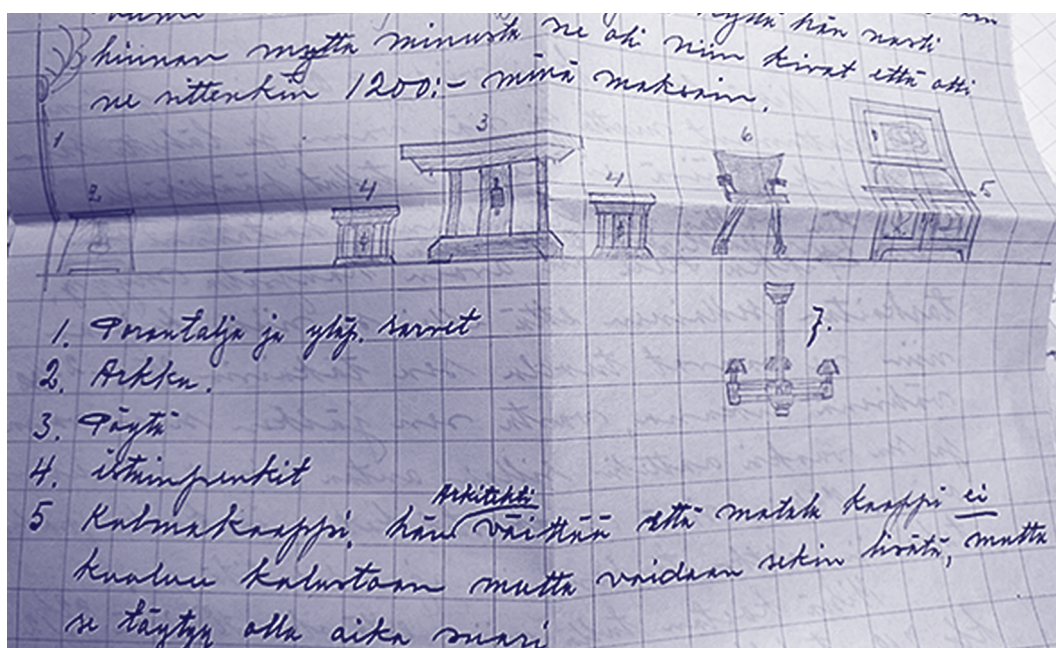 hän nosti
hinnan mutta minusta ne oli niin kivat että otti
ne sittenkin 1200:- minä maksoin.
1
2
4
3
4
6
5
7.
1. Porontalja ja yläp. sarvet
2. Arkku.
3. Pöytä
4. istuinpenkit
Arkitehti
5 Kulmakaappi, hän väittää että matala kaappi ei
kuuluu kalustoon mutta voidaan sekin lisätä, mutta
se täytyy olla aika suuri